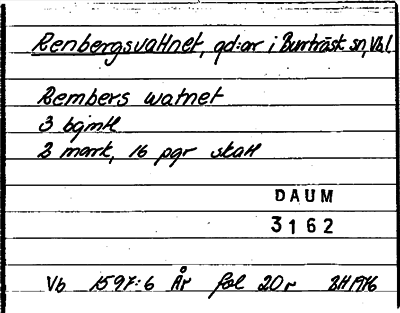 Renbergsvattnet, gd:ar i Burträsk sn, Vbl
Rembers watnet
3 bgmtl
2 mark, 16 pgr skatt
DAUM
3162
Vb 1597:6 År fol 20r BH 1976